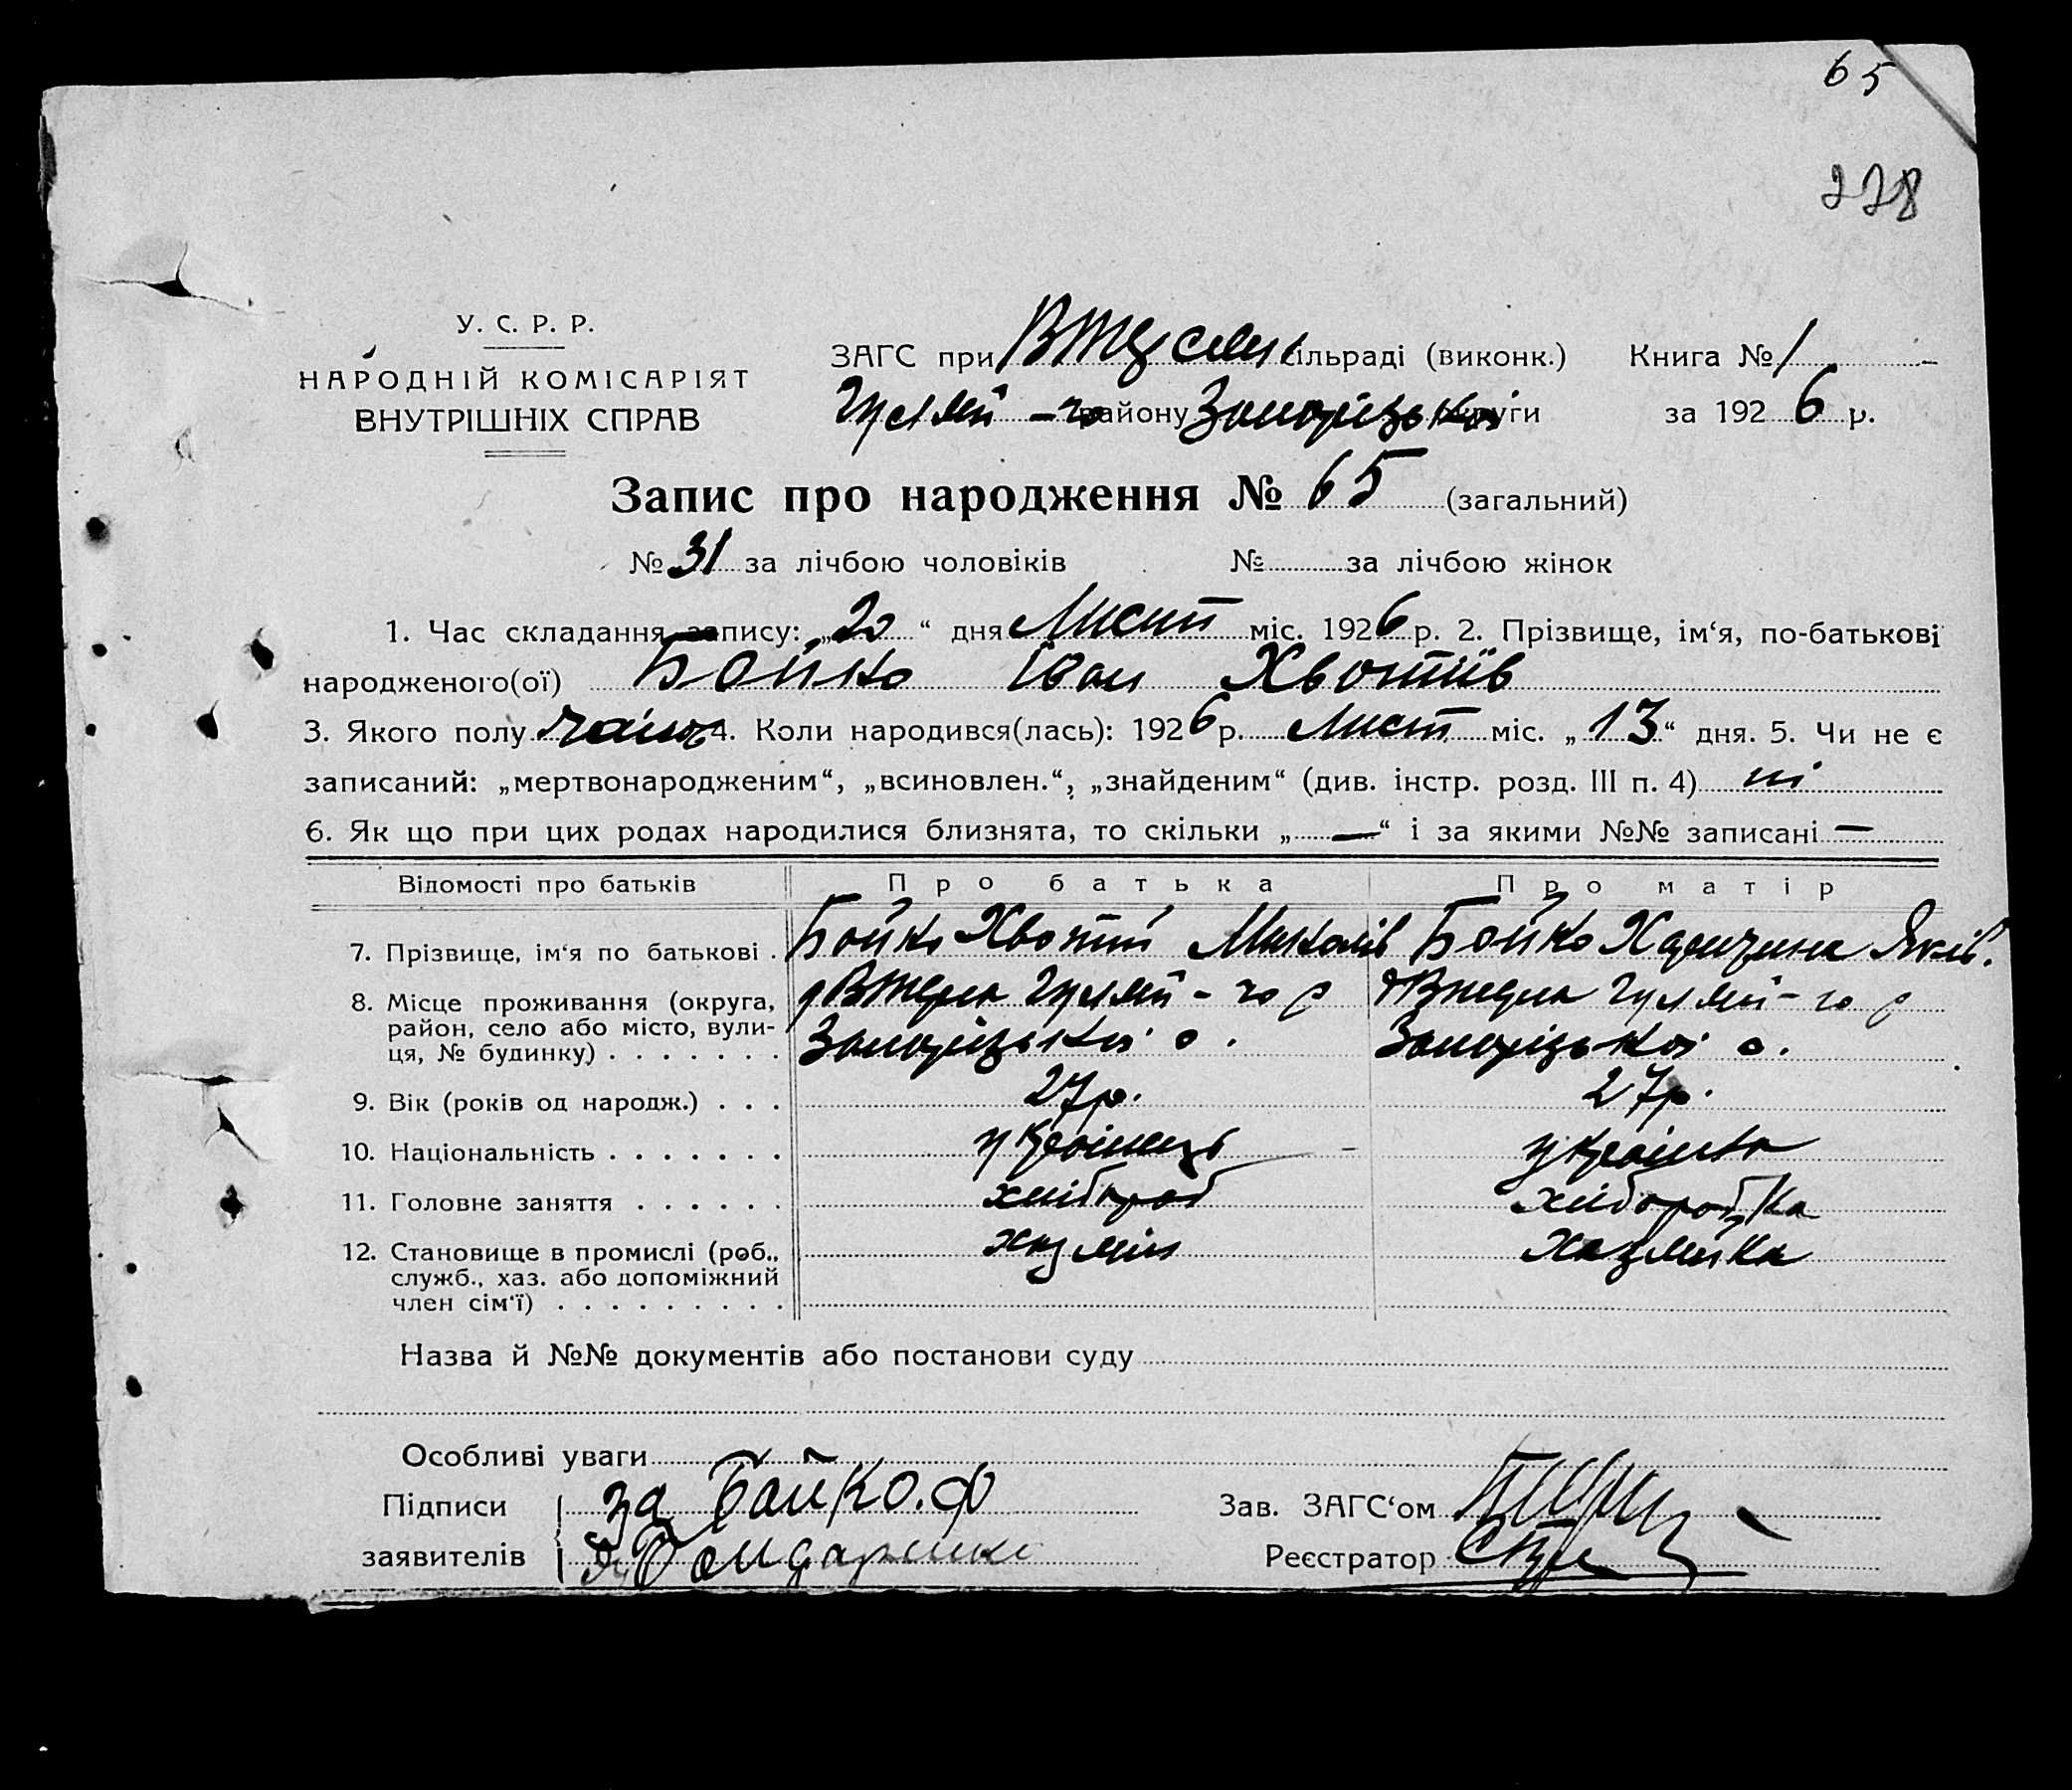 65
228
У. С. Р. Р.
НАРОДНІЙ КОМІСАРІЯТ
ВНУТРІШНІХ СПРАВ
ЗАГС при сільраді (виконк.) Книга № 1
Гуляй - го району Запорізької округи за 1926 р.
Запис про народження № 65 (загальний)
№ 31 за лічбою чоловіків № за лічбою жінок
1. Час складання запису: „20“ дня Лист міс. 1926 р. 2. Прізвище, ім‘я, по-батькові
народженого(ої) Бойко Іван Хвотіїв
3. Якого полу 4. Коли народився(лась): 1926 р. Лист міс. „13“ дня. 5. Чи не є
записаний: „мертвонародженим“, „всиновлен.“, „знайденим“ (див. інстр. розд. III п. 4) ні
6. Як що при цих родах народилися близнята, то скільки „—“ і за якими №№ записані —
Відомості про батьків Про батька Про матір
7. Прізвище, ім‘я по батькові . Бойко Хвотій Миколів Бойко Яків.
8. Місце проживання (округа, Гуляй - го р Гуляй - го р
район, село або місто, вули-
ця, № будинку) . . . . . . . Запорізької о. Запорізької о.
9. Вік (років од народж.) . . . 27 р. 27 р.
10. Національність . . . . . . . українець українка
11. Головне заняття . . . . . . хлібороб хлібороб,ка
12. Становище в промислі (роб., хазяїн хазяйка
служб., хаз. або допоміжний
член сім‘ї) . . . . . . . . .
Назва й №№ документів або постанови суду
Особливі уваги
Підписи за Бойко. Ф Зав. ЗАГС‘ом
заявителів Бондаренко Реєстратор